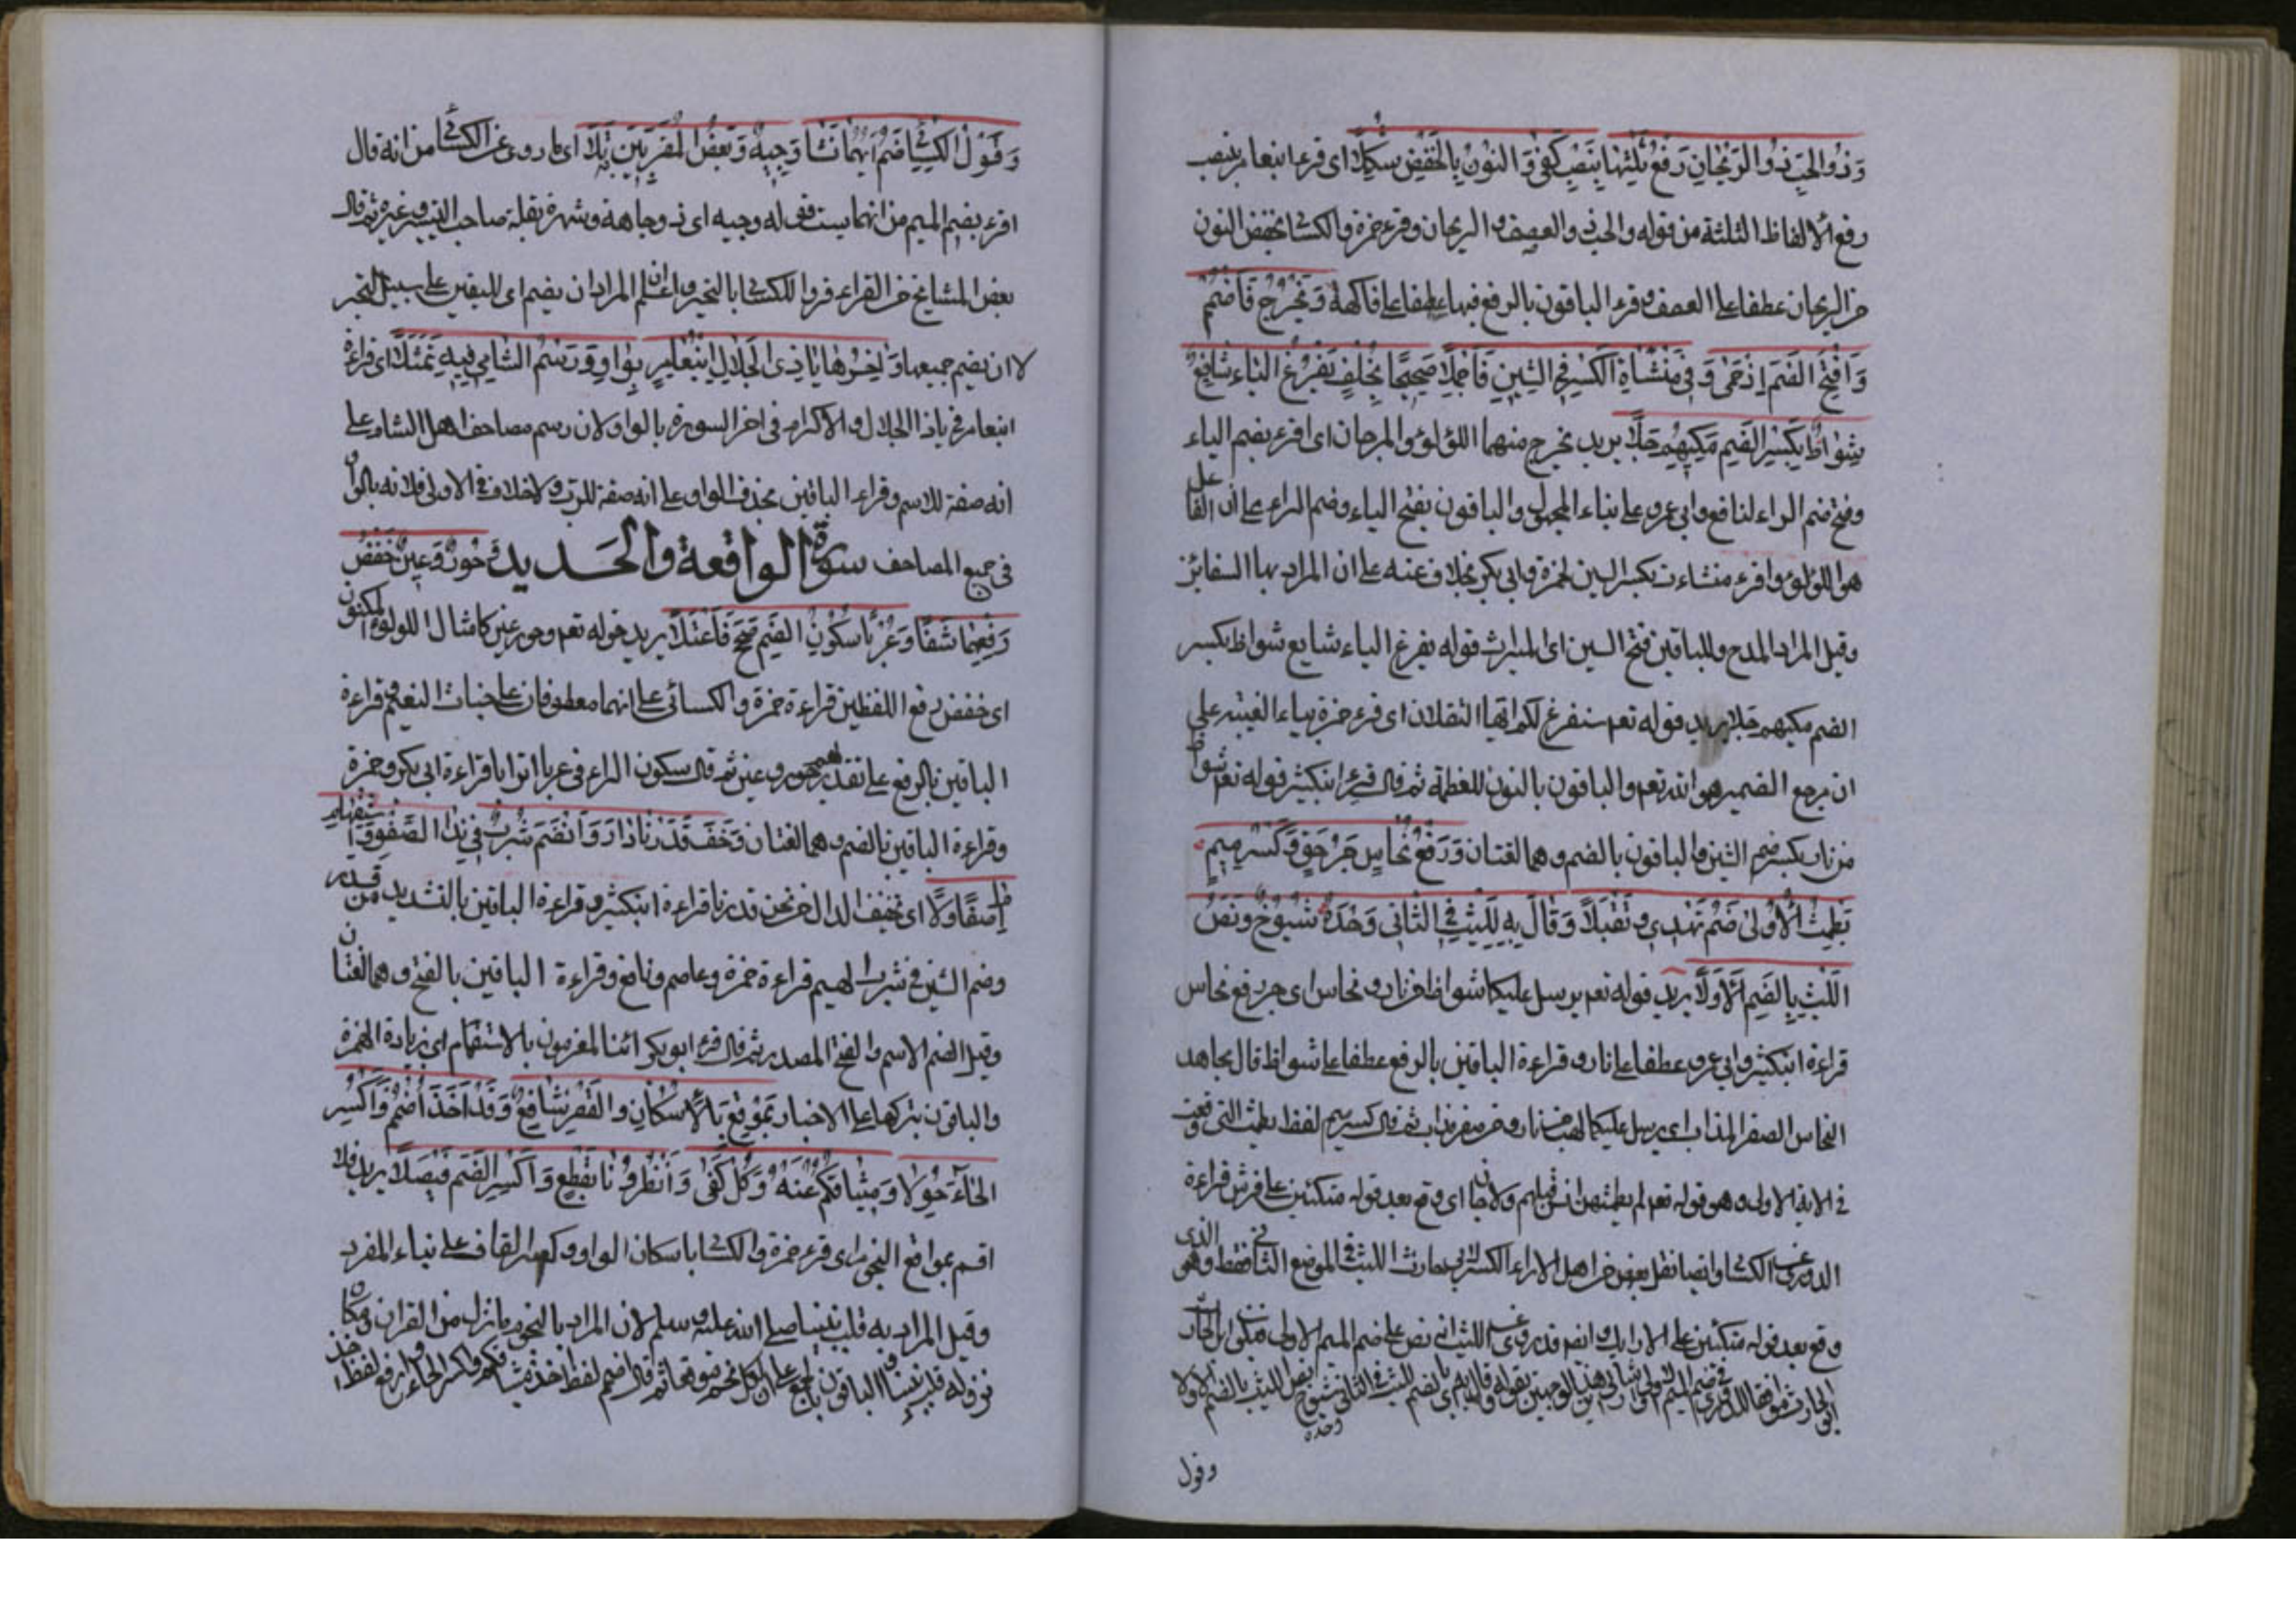 وَذُو الحَبِّ ذُو الرَّيحَانِ رَفْعُ ثَلَثِهَا بِنَصْبٍ كَفَى وَالنُّونُ بِالخَفْضِ شُكِّلَا اى قرء ابنعامر بنصب
رفع الالفاظ الثلثة من قوله والحب ذو العصف والريحان وقرء حمزة والكسائى بخفض النون
من الريحان عطفا على العصف وقرء الباقون بالرفع فيها عطفا على فاكهة وَيَخْرُجُ فَاضْمُمْ
وَافْتَحِ الضَّمَّ إِذْ حَمَى وَفِى مُنْشَآتُ الكَسْرُ فِى الشِّينِ فَاحْمِلَا صَحِيحًا بِخُلْفٍ يَفْرُغُ اليَاءُ شَائِعٌ
شُوَاظٌ بِكَسْرِ الضَّمِّ مَكِّيُّهُمْ جَلَا يريد يخرج منهما اللؤلؤ والمرجان اى اقرء بضم الياء
وفتح ضم الراء لنافع وابى عمرو على بناء المجهول والباقون بفتح الياء وضم الراء على ان الفاعل
هو اللؤلؤ واقرء منشاءت بكسر الشين لحمزة وابى بكر بخلاف عنه على ان المراد بها السفائن
وقيل المراد المدح وللباقين فتح الشين اى المنشات قوله يفرغ الياء شايع شواظ بكسر
الضم مكيهم جلا يريد قوله تعم سنفرغ لكم ايها الثقلان اى قرء حمزة بياء الغيبة على
ان مرجع الضمير هو الله تعم والباقون بالنون للعظمة ثم قال قرء ابنكثير قوله تعم شواظ
من نار بكسر ضم الشين والباقون بالضم وهما لغتان وَرَفْعُ نُحَاسٍ جَرَّ حَقٌّ وَكَسْرَ مِيمِ
يَطْمِثْ الأُولَى ضُمَّ تُهْدَى وَتُقْبَلَا وَقَالَ بِهِ لِلَّيْثِ فِى الثَّانِى وَحْدَهُ شُيُوخٌ وَنَصُّ
اللَّيْثِ بِالضَّمِّ الأَوَّلَا يريد قوله تعم يرسل عليكما شواظ من نار ونحاس اى جر رفع نحاس
قراءة ابنكثير وابى عمرو عطفا على نار وقراءة الباقين بالرفع عطفا على شواظ قال مجاهد
النحاس الصفر المذاب اى يرسل عليكما لهب من نار وصفر مذاب ثم قال كسر ميم لفظ يطمث التى وقعت
فى الاية الاولى وهو قوله تعم لم يطمثهن انس قبلهم ولا جان اى وقع بعد قوله متكئين على فرش قراءة
الدورى عن الكسائى وايضا نقل بعض من اهل الاداء الكسر لابى حارث الليث فى الموضع الثانى فقط وهو الذى
وقع بعد قوله متكئين على الارايك وانه قد روى عن الليث انه نص على ضم الميم الاولى
وقول
وَقَوْلُ الكِسَائِى ضُمَّ أَيُّهُمَا تَشَا وَجِيهٌ وَبَعْضُ المُقْرِئِينَ بِهِ تَلَا اى ما روى عن الكسائى من انه قال
اقرء بضم الميم من ايهما يسئت قوله وجيه اى ذو وجاهة وشهرة بنقله صاحب التيسير وغيره ثم قال
بعض المشايخ من القراء قروا للكسائى بالتخيير واعلم ان المراد ان يضم اى اليقين على سبيل التخير
لا ان يضم جميعها وَآخِرُهَا يَا ذِى الجَلَالِ ابْنُ عَامِرٍ بِوَاوٍ وَرَسْمُ الشَّامِ فِيهِ تَمَثَّلَا اى قراءة
ابنعامر فى ياذا الجلال والاكرام فى اخر السورة بالواو لان رسم مصاحف اهل الشام على
انه صفة للاسم وقراءة الباقين بحذف الواو على انه صفة للرب ولا خلاف فى الاولى فلانه بالواو
فى جميع المصاحف سورة الواقعة والحديد وَحُورٌ وَعِينٌ خَفْضُ
رَفْعِهِمَا شَفَا وَعُرْبًا سُكُونُ الضَّمِّ صُحِّحَ فَاعْتَلَا يريد قوله تعم وحور عين كامثال اللولؤ المكنون
اى خفض رفع اللفظين قراءة حمزة والكسائى على انهما معطوفان على جنات النعيم وقراءة
الباقين بالرفع على تقدير لهم حور وعين ثم قال سكون الراء فى عربا اترابا قراءة ابى بكر وحمزة
وقراءة الباقين بالضم وهما لغتان وَخَفَّ قَدَرْنَا دَارَ وَانْضَمَّ شُرْبُ فِى نَدَا الصَّفْوِ وَاسْتِفْهَامُ
إِنَّا صَفَا وَلَا اى تخفيف الدال من نحن قدرنا قراءة ابنكثير وقراءة الباقين بالتشديد من قدر
وضم الشين فى شرب الهيم قراءة حمزة وعاصم ونافع وقراءة الباقين بالفتح وهما لغتان
وقيل الضم الاسم والفتح المصدر ثم قال قرء ابو بكر ائنا لمغرمون بالاستفهام اى بزيادة الهمزة
والباقون بتركها على الاخبار بِمَوْقِعِ بِالإِسْكَانِ وَالقَصْرِ شَائِعٌ وَقَدْ أَخَذَ اضْمُمْ وَاكْسِرِ
الخَاءَ حُوَّلَا وَمِيثَاقُكُمْ عَنْهُ وَكُلٌّ كَفَى وَأَنْظِرُونَا بِقَطْعٍ وَاكْسِرِ الضَّمَّ فَيْصَلَا يريد فلا
اقسم بمواقع النجوم اى قرء حمزة والكسائى باسكان الواو وكسر القاف على بناء المفرد
وقيل المراد به قلب نبينا صلى الله عليه وسلم لان المراد بالنجوم ما نزل من القران ومكان
نزوله قلب نبينا والباقون بالجمع على ان لكل نجم موقعا ثم قال اضم لفظ اخذ ميثاقكم واكسر الخاء وارفع لفظ